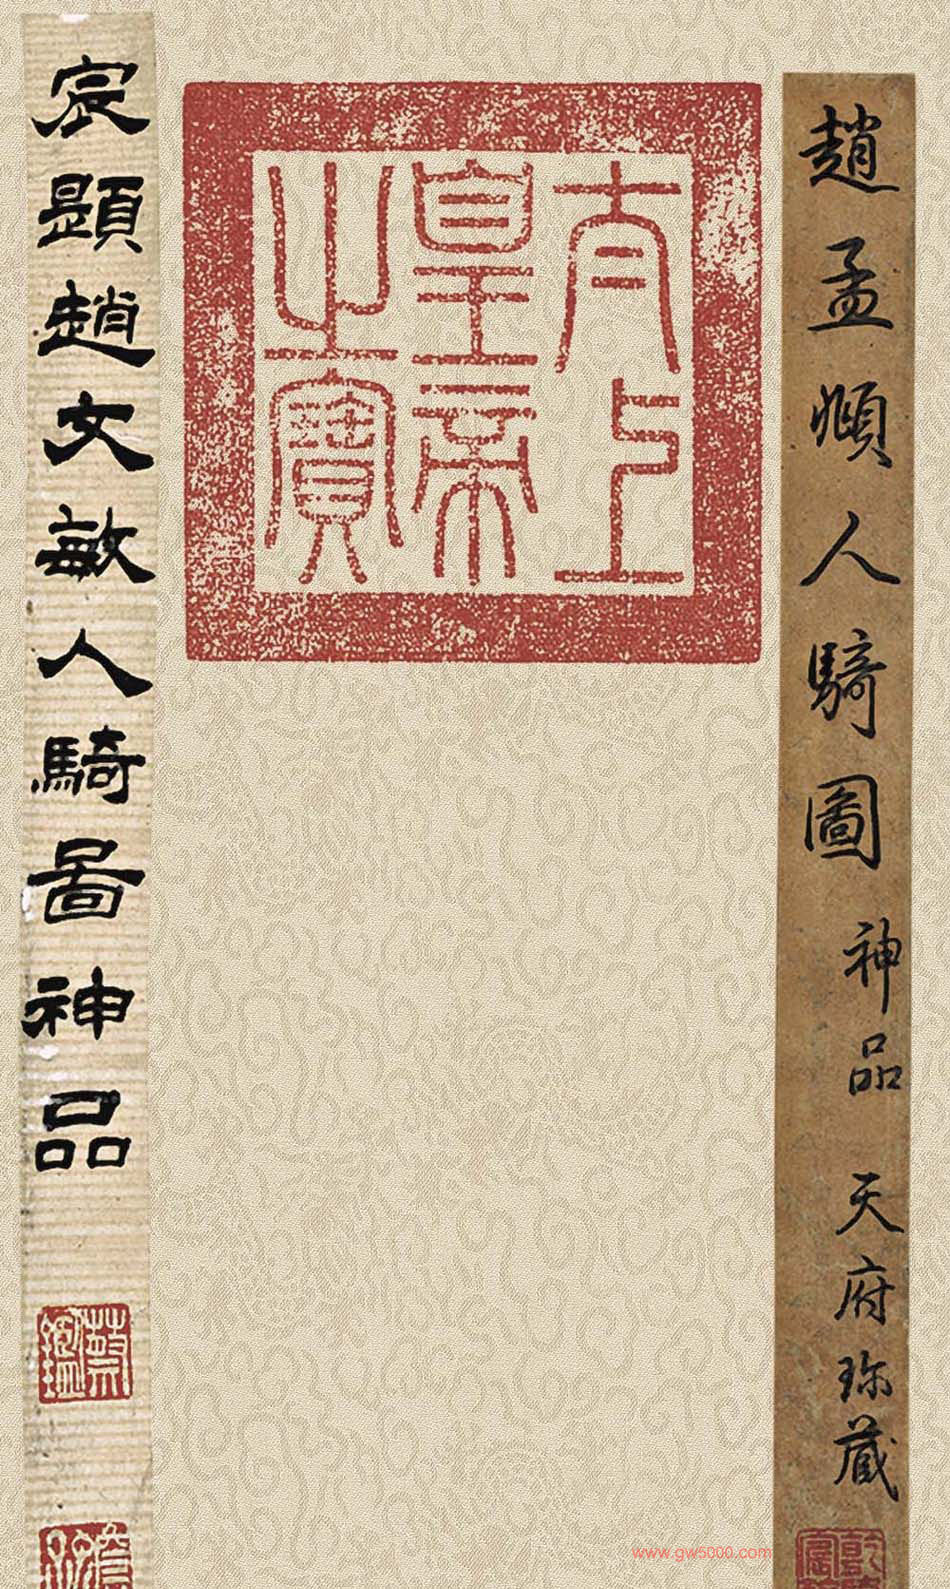 趙孟頫人騎圖 神品 天府珎藏
太上
皇帝
之寶
宸題趙文敏人騎圖神品
www.gw5000.com